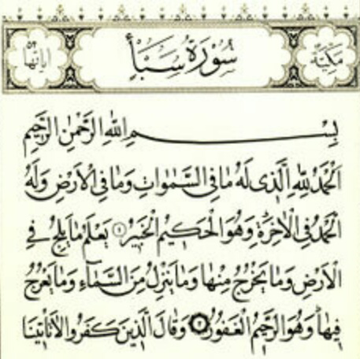 مكية سورة سبأ آياتها ٥٤
بسم الله الرحمن الرحيم
الحمد لله الذي له ما في السموات وما في الأرض وله
الحمد في الآخرة وهو الحكيم الخبير ١ يعلم ما يلج في
الأرض وما يخرج منها وما ينزل من السماء وما يعرج
فيها وهو الرحيم الغفور ٢ وقال الذين كفروا لا تأتينا